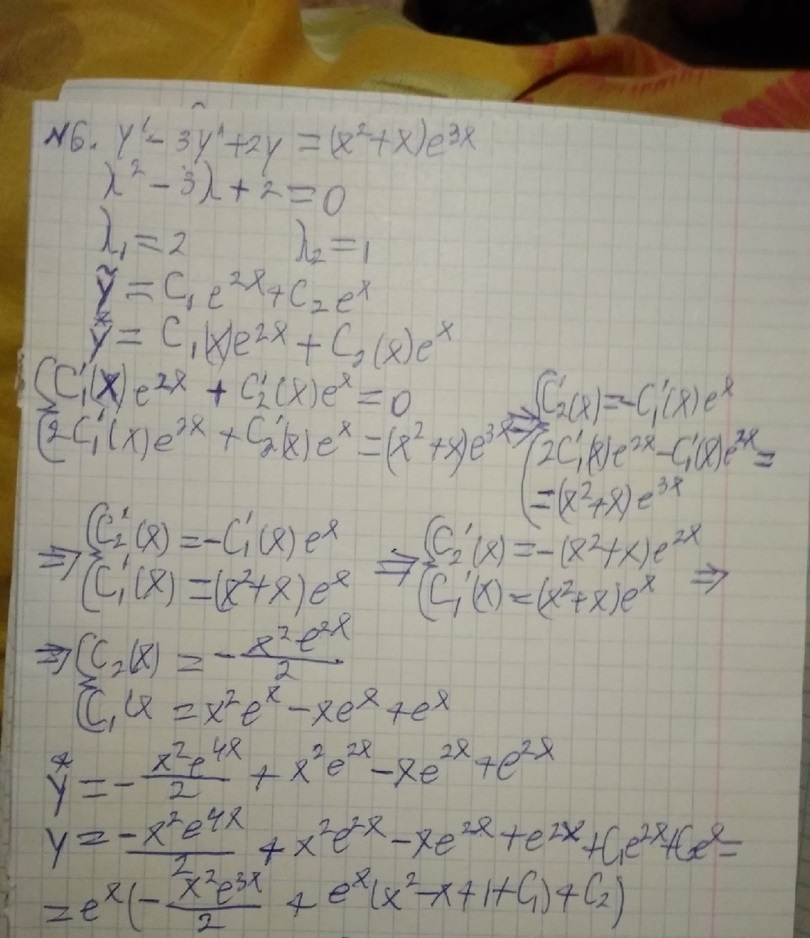 №6. y'' - 3y' + 2y = (x² + x)e³ˣ
λ² - 3λ + 2 = 0
λ₁ = 2 λ₂ = 1
ỹ = C₁e²ˣ + C₂eˣ
y* = C₁(x)e²ˣ + C₂(x)eˣ
{ C₁'(x)e²ˣ + C₂'(x)eˣ = 0
{ 2C₁'(x)e²ˣ + C₂'(x)eˣ = (x² + x)e³ˣ ⇒
{ C₂'(x) = -C₁'(x)eˣ
{ 2C₁'(x)e²ˣ - C₁'(x)e²ˣ =
= (x² + x)e³ˣ
⇒ { C₂'(x) = -C₁'(x)eˣ
{ C₁'(x) = (x² + x)eˣ
⇒ { C₂'(x) = -(x² + x)e²ˣ
{ C₁'(x) = (x² + x)eˣ ⇒
⇒ { C₂(x) = - x²e²ˣ / 2
{ C₁(x = x²eˣ - xeˣ + eˣ
y* = - x²e⁴ˣ / 2 + x²e²ˣ - xe²ˣ + e²ˣ
y = -x²e⁴ˣ / 2 + x²e²ˣ - xe²ˣ + e²ˣ + C₁e²ˣ + C₂eˣ =
= eˣ(- x²e³ˣ / 2 + eˣ(x² - x + 1 + C₁) + C₂)